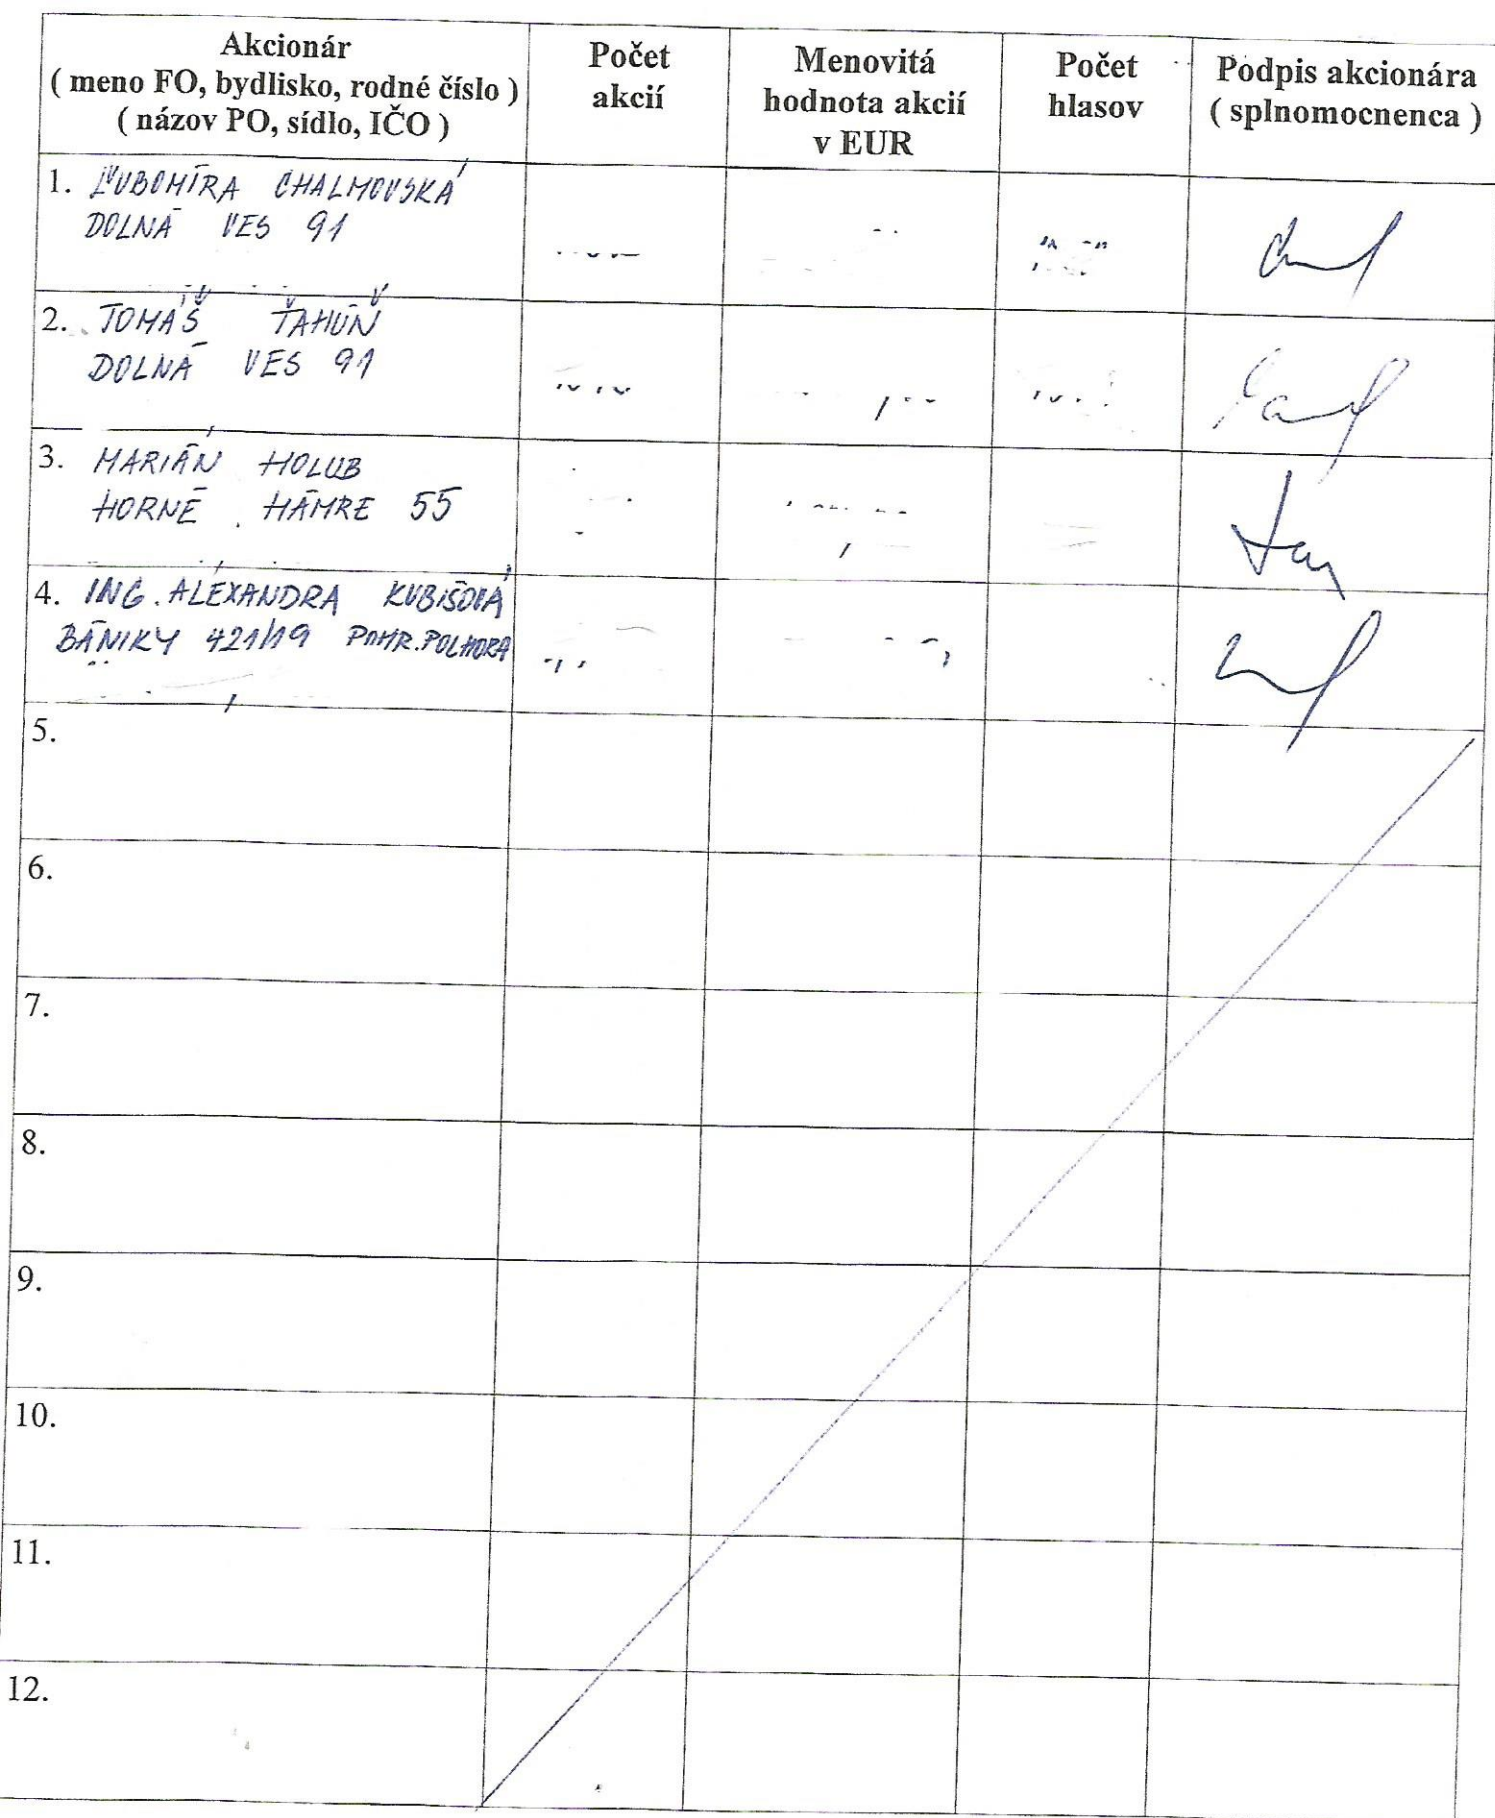 Akcionár
( meno FO, bydlisko, rodné číslo )
( názov PO, sídlo, IČO )
Počet
akcií
Menovitá
hodnota akcií
v EUR
Počet
hlasov
Podpis akcionára
( splnomocnenca )
1. ĽUBOMÍRA CHALMOVSKÁ
DOLNÁ VES 91
2. TOMÁŠ ŤAHÚŇ
DOLNÁ VES 91
3. MARIÁN HOLUB
HORNÉ HÁMRE 55
4. ING. ALEXANDRA KUBIŠOVÁ
BÁNIKY 421/19 POHR.POLHORA
5.
6.
7.
8.
9.
10.
11.
12.